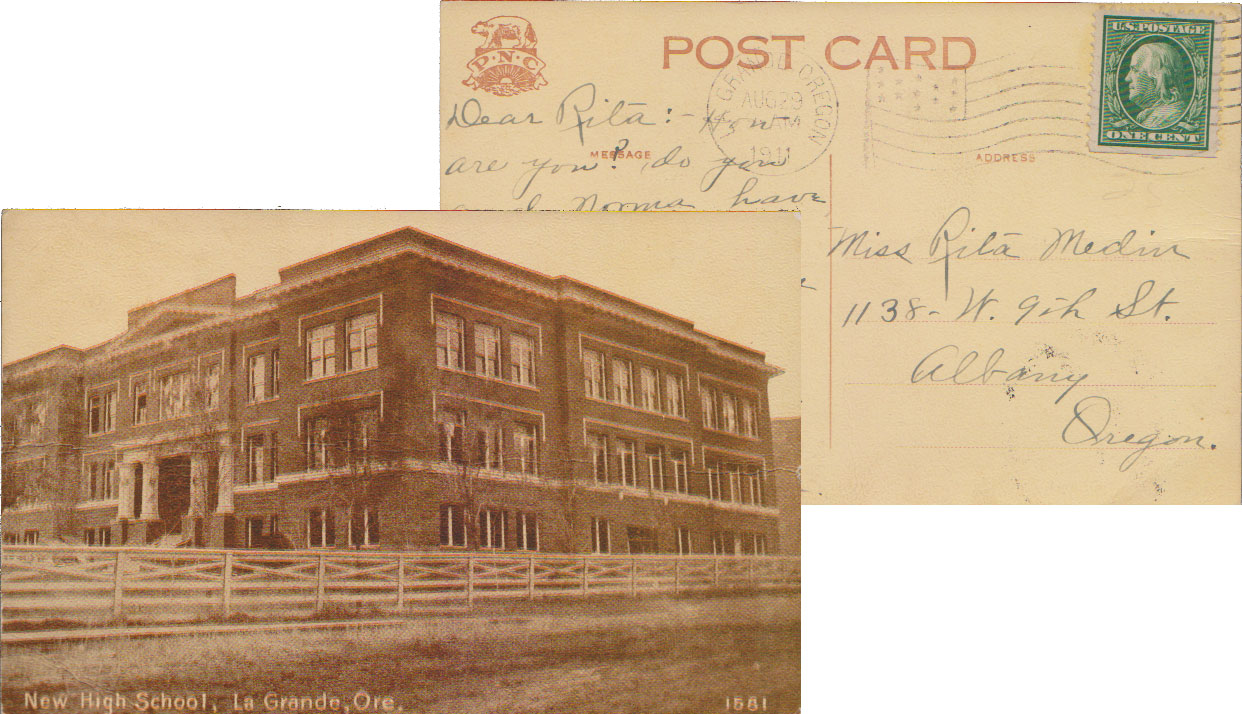 P·N·C
POST CARD
LA GRANDE, OREGON
AUG 29
AM
1911
U.S. POSTAGE
ONE CENT
MESSAGE
ADDRESS
Dear Rita:- How
are you? do you
and Norma have
Miss Rita Medin
1138- W. 9th St.
Albany
Oregon.
New High School, La Grande, Ore.
1581